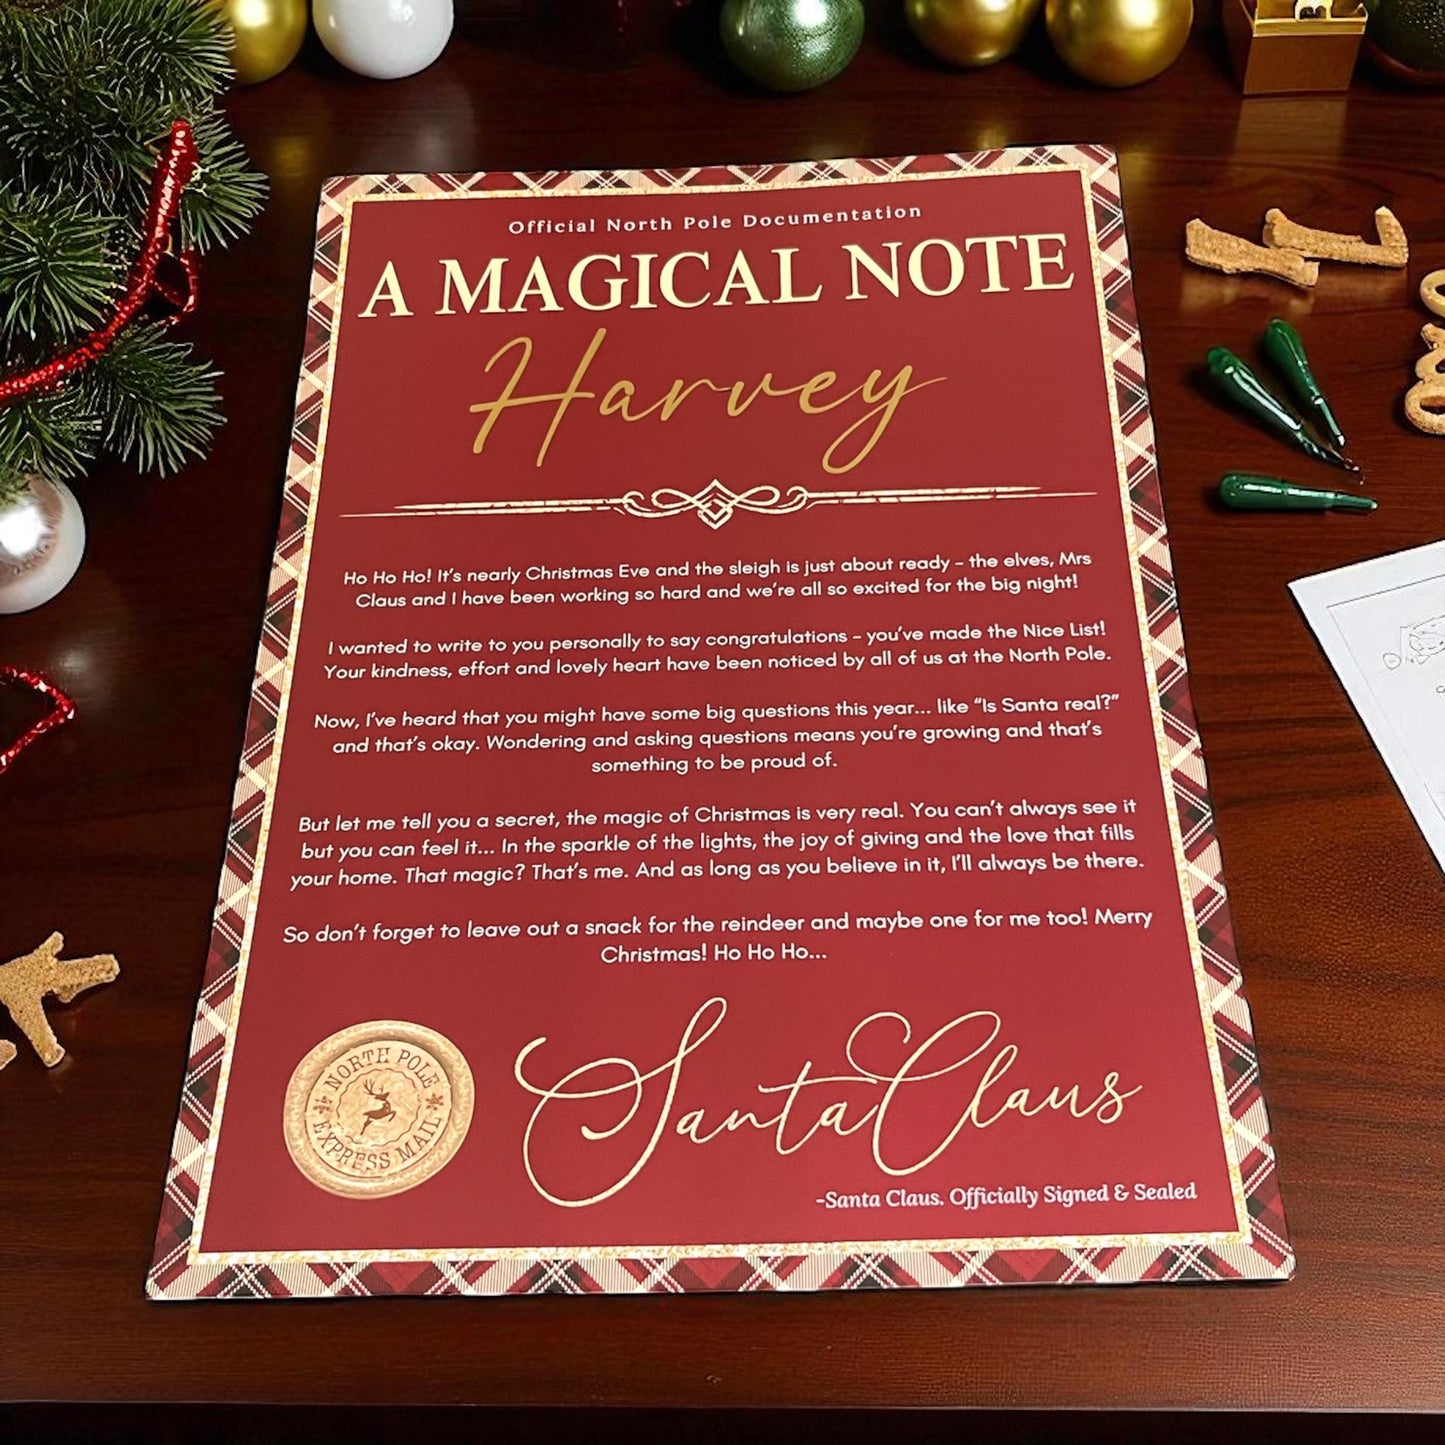 Official North Pole Documentation
A MAGICAL NOTE
Harvey
Ho Ho Ho! It's nearly Christmas Eve and the sleigh is just about ready – the elves, Mrs
Claus and I have been working so hard and we're all so excited for the big night!
I wanted to write to you personally to say congratulations – you've made the Nice List!
Your kindness, effort and lovely heart have been noticed by all of us at the North Pole.
Now, I've heard that you might have some big questions this year... like "Is Santa real?"
and that's okay. Wondering and asking questions means you're growing and that's
something to be proud of.
But let me tell you a secret, the magic of Christmas is very real. You can't always see it
but you can feel it... In the sparkle of the lights, the joy of giving and the love that fills
your home. That magic? That's me. And as long as you believe in it, I'll always be there.
So don't forget to leave out a snack for the reindeer and maybe one for me too! Merry
Christmas! Ho Ho Ho...
NORTH POLE
EXPRESS MAIL
Santa Claus
-Santa Claus. Officially Signed & Sealed